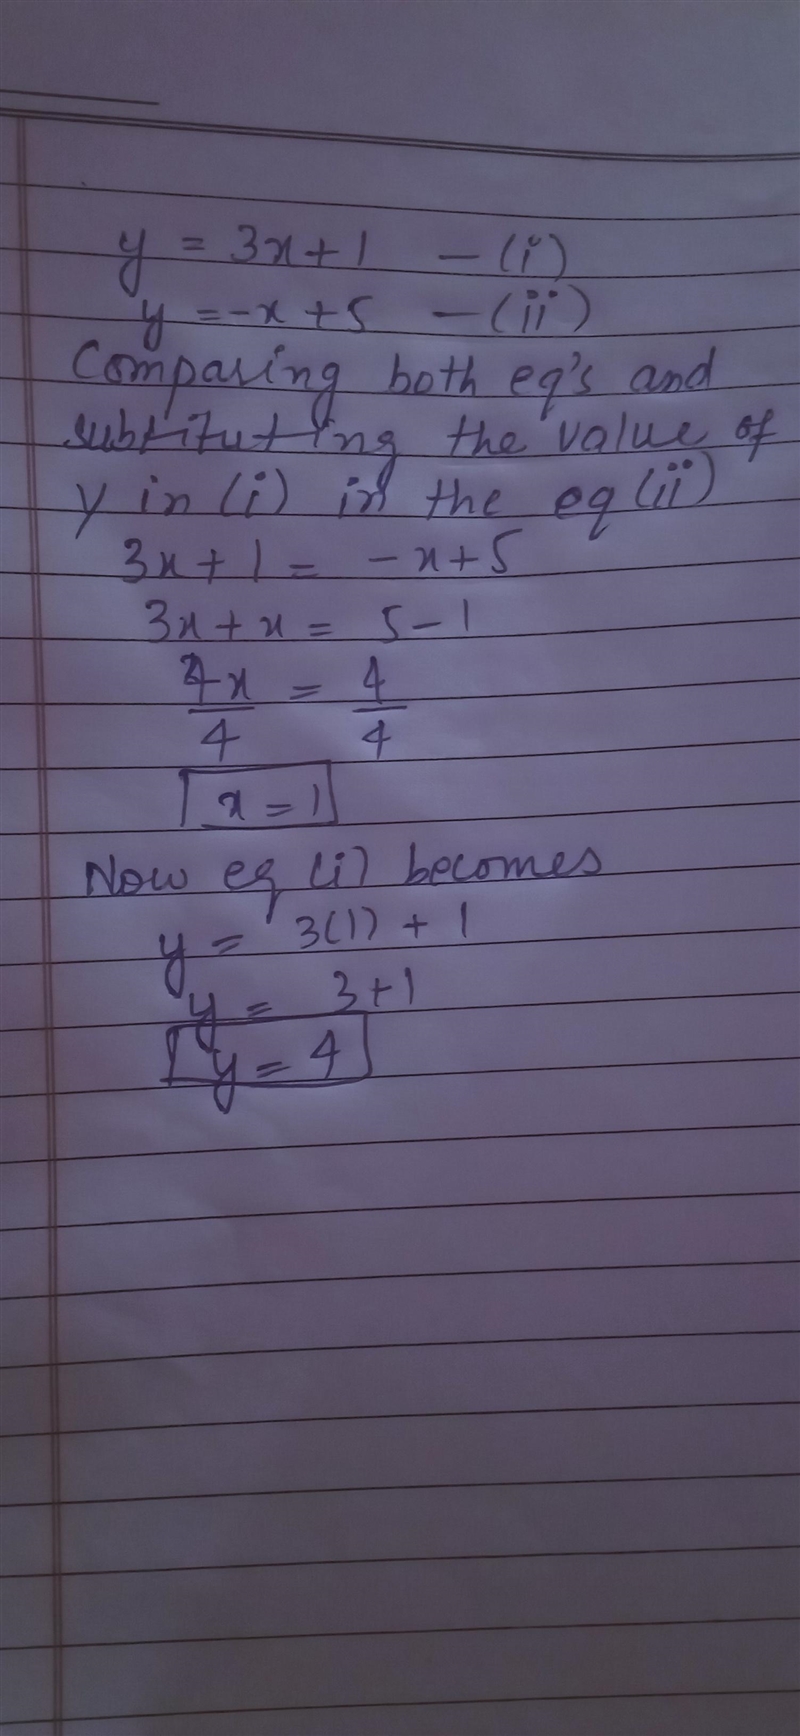 y = 3x + 1 - (i)
y = -x + 5 - (ii)
Comparing both eq's and
substituting the value of
y in (i) in the eq (ii)
3x + 1 = -x + 5
3x + x = 5 - 1
4x/4 = 4/4
x = 1
Now eq (i) becomes
y = 3(1) + 1
y = 3 + 1
y = 4